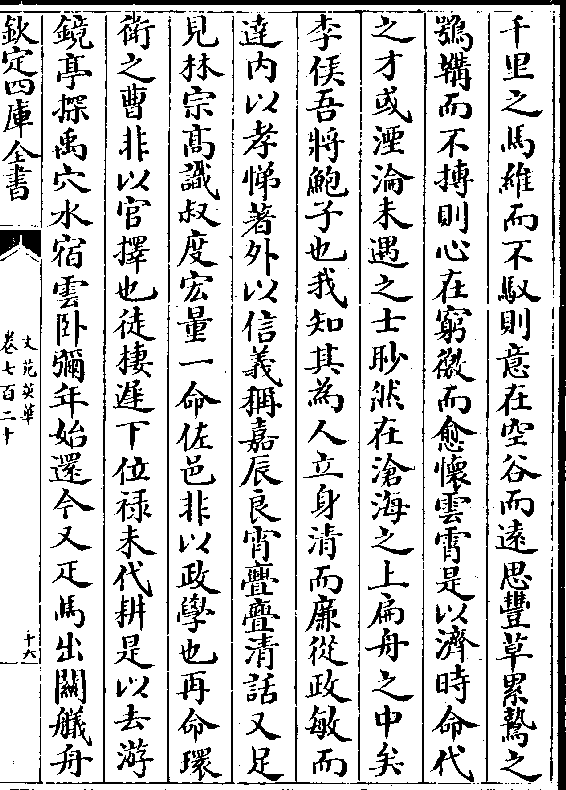 千里之馬維而不馭則意在空谷而遠思豐草累鷙之
鶚韝而不摶則心在窮徼而愈懷雲霄是以濟時命代
之才或湮淪未遇之士眇然在滄海之上扁舟之中矣
李侯吾將鮑子也我知其為人立身清而廉從政敏而
達内以孝悌著外以信義稱嘉辰良宵亹亹清話又足
見林宗髙識叔度宏量一命佐邑非以政學也再命環
衛之曹非以官擇也徒棲遲下位禄未代耕是以去游
鏡亭探禹穴水宿雲卧彌年始還今又疋馬出關艤舟
欽定四庫全書
文苑英華
卷七百二十
十六